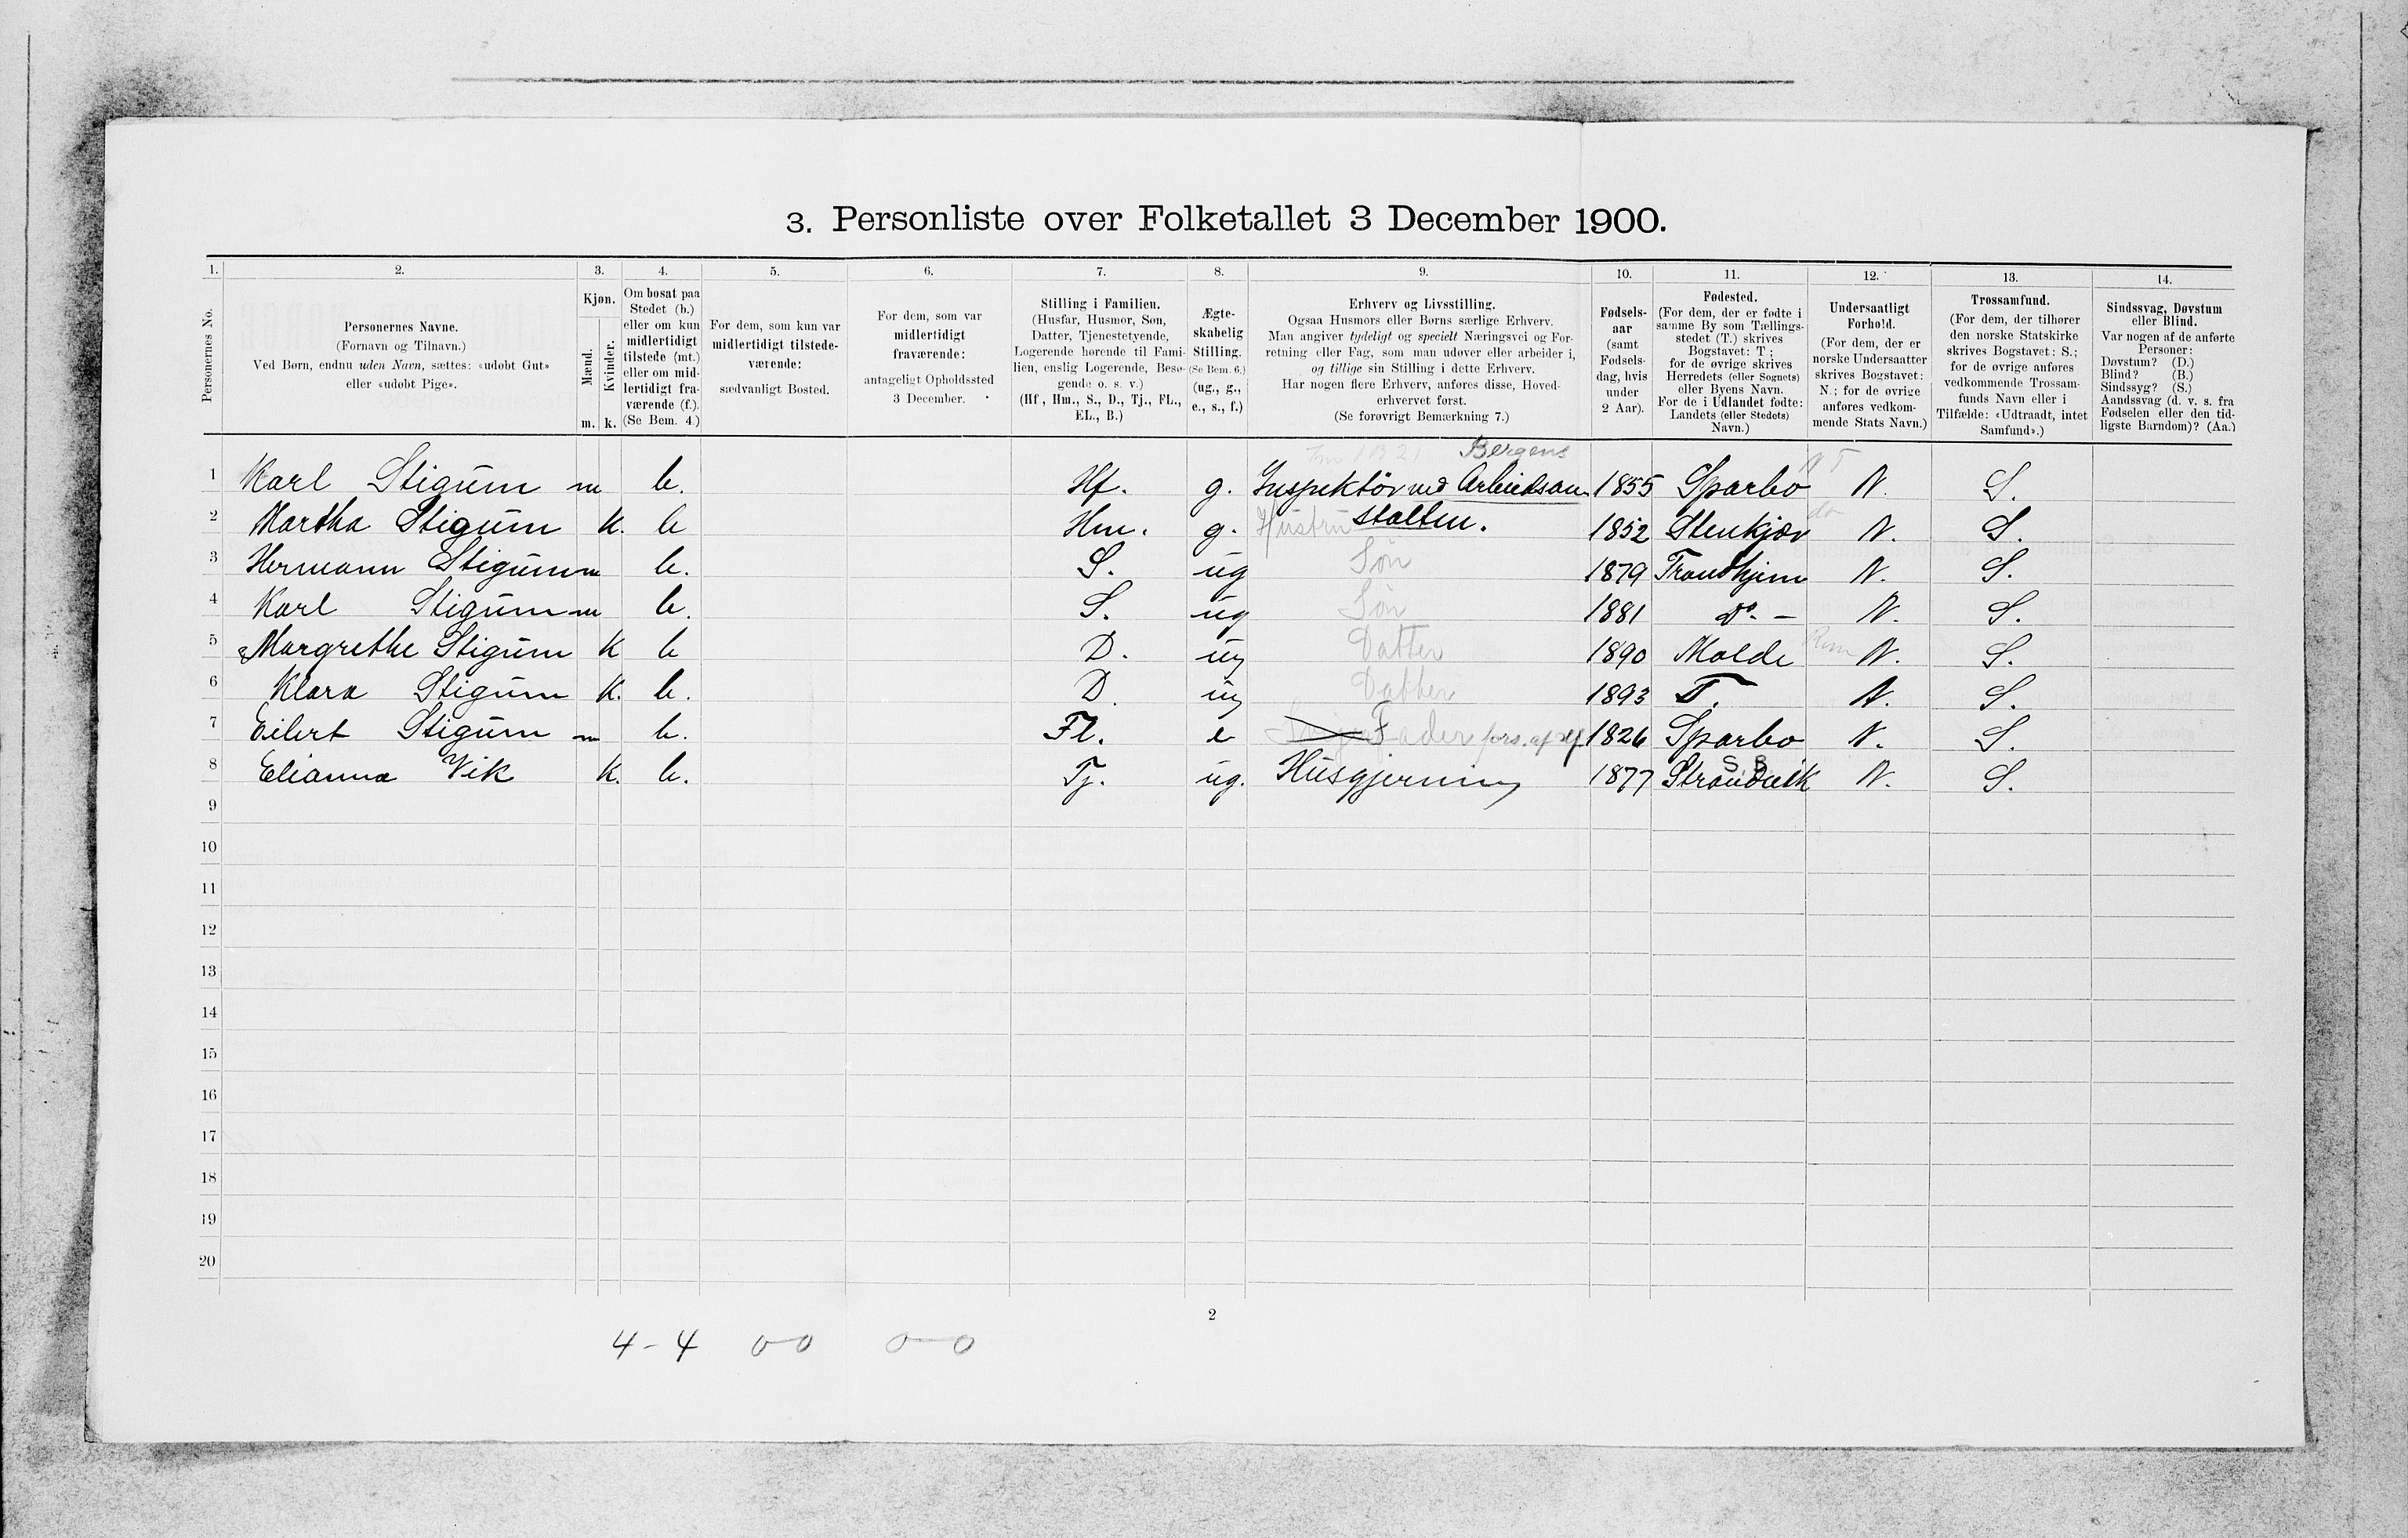 3. Personliste over Folketallet 3 December 1900.
1. 2. 3. 4. 5. 6. 7. 8. 9. 10. 11. 12. 13. 14.
Personernes No.
Personernes Navne.
(Fornavn og Tilnavn.)
Ved Børn, endnu uden Navn, sættes: «udøbt Gut»
eller «udøbt Pige».
Kjøn.
Mænd.
Kvinder.
m. k.
Om bosat paa
Stedet (b.)
eller om kun
midlertidigt
tilstede (mt.)
eller om mid-
lertidigt fra-
værende (f.).
(Se Bem. 4.)
For dem, som kun var
midlertidigt tilstede-
værende:
sædvanligt Bosted.
For dem, som var
midlertidigt
fraværende:
antageligt Opholdssted
3 December.
Stilling i Familien.
(Husfar, Husmor, Søn,
Datter, Tjenestetyende,
Logerende hørende til Fami-
lien, enslig Logerende, Besø-
gende o. s. v.)
(Hf, Hm., S., D., Tj., FL.,
EL., B.)
Ægte-
skabelig
Stilling.
(Se Bem. 6.)
(ug., g.,
e., s., f.)
Erhverv og Livsstilling.
Ogsaa Husmors eller Børns særlige Erhverv.
Man angiver tydeligt og specielt Næringsvei og For-
retning eller Fag, som man udøver eller arbeider i,
og tillige sin Stilling i dette Erhverv.
Har nogen flere Erhverv, anføres disse, Hoved-
erhvervet først.
(Se forøvrigt Bemærkning 7.)
Fødsels-
aar
(samt
Fødsels-
dag, hvis
under
2 Aar).
Fødested.
(For dem, der er fødte i
samme By som Tællings-
stedet (T.) skrives
Bogstavet: T;
for de øvrige skrives
Herredets (eller Sognets)
eller Byens Navn.
For de i Udlandet fødte:
Landets (eller Stedets)
Navn.)
Undersaatligt
Forhold.
(For dem, der er
norske Undersaatter
skrives Bogstavet:
N.; for de øvrige
anføres vedkom-
mende Stats Navn.)
Trossamfund.
(For dem, der tilhører
den norske Statskirke
skrives Bogstavet: S.;
for de øvrige anføres
vedkommende Trossam-
funds Navn eller i
Tilfælde: «Udtraadt, intet
Samfund».)
Sindssvag, Døvstum
eller Blind.
Var nogen af de anførte
Personer:
Døvstum? (D.)
Blind? (B.)
Sindssyg? (S.)
Aandssvag (d. v. s. fra
Fødselen eller den tid-
ligste Barndom)? (Aa.)
Bergens
1 Karl Stigum m b. Hf. g. Inspektør ved Arbeidsan 1855 Sparbo N T N. S.
stalten.
2 Martha Stigum K. b Hm. g. Hustru 1852 Stenkjær do N. S.
3 Hermann Stigum m b. S. ug Søn 1879 Trondhjem N. S.
4 Karl Stigum m b. S. ug Søn 1881 do. – N. S.
5 Margrethe Stigum K b D. ug Datter 1890 Molde Rom N. S.
6 Klara Stigum K. b. D. ug Datter 1893 T. N. S.
7 Eilert Stigum m b. Fl. e Fader fors. af Hf. 1826 Sparbo N. S.
S. B.
8 Elianna Vik K. b. Tj. ug. Husgjerning 1877 Strandvik N. S.
9
10
11
12
13
14
15
16
17
18
19
20
2
4-4 0-0 0-0